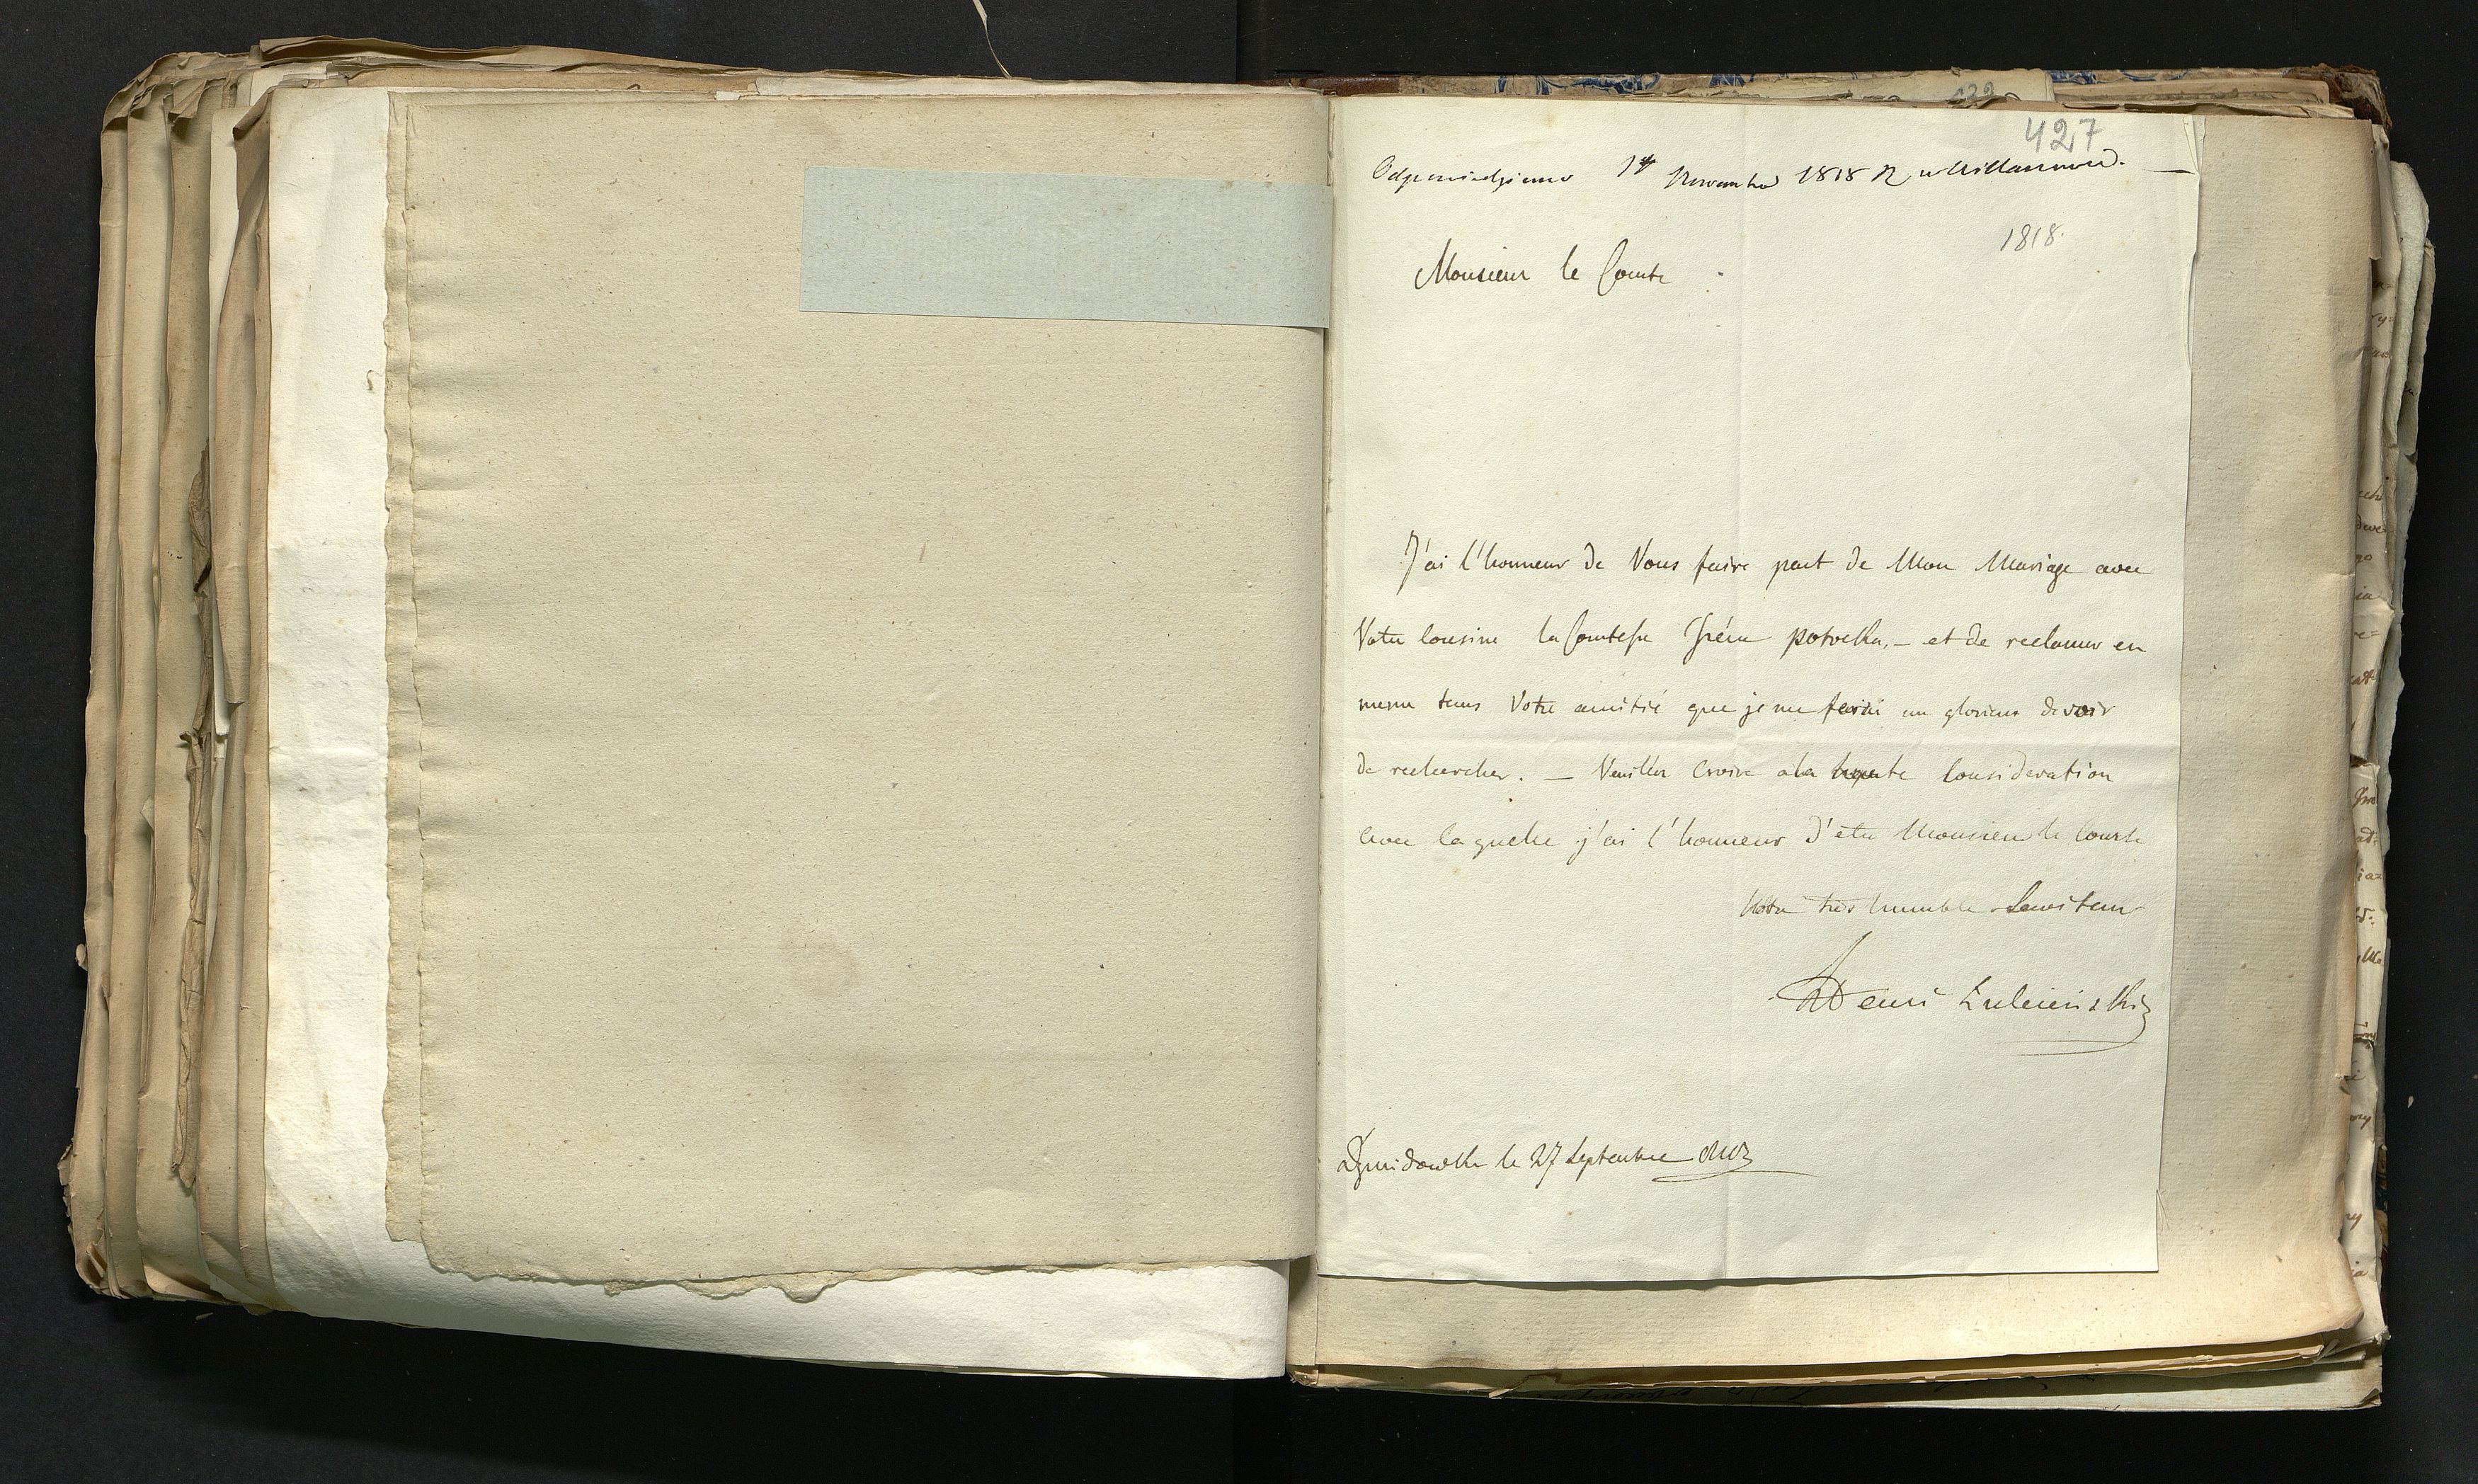 427
Odpowiedziano 1go Novembra 1818 R w Willanowie. —
1818.
Monsieur le Comte :
J'ai l'honneur de Vous faire part de Mon Mariage avec
Votre Cousine la Comtesse Iréne potocka, — et de reclamer en
meme tems Votre amitié que je me ferai un glorieux devoir
de rechercher. — Veuillez Croire a la haute Consideration
avec laquelle j'ai l'honneur d'etre Monsieur le Comte
Votre très humble Serviteur
Henri
le 27 Septembre